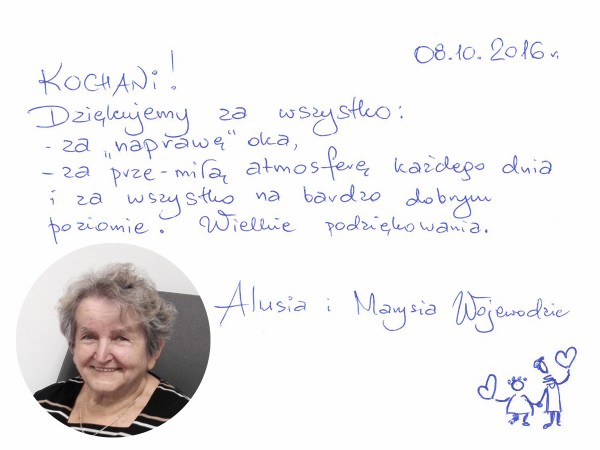 08.10.2016 r.
KOCHANI!
Dziękujemy za wszystko:
- za „naprawę" oka,
- za prze-miłą atmosferę każdego dnia
i za wszystko na bardzo dobrym
poziomie. Wielkie podziękowania.
Alusia i Marysia Wojewodzic